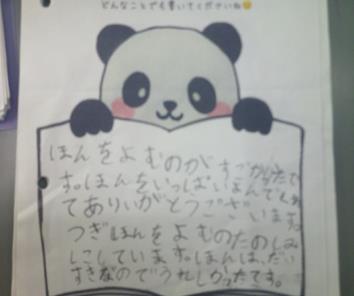 どんなことでも書いてくださいね😊
ほんをよむのがすごかったで
す。ほんをいっぱいよんでくれ
てありいがとうござ います。
つぎほんをよむのたのしみ
にこしています。ほんは、だい
すきなのでうれしかったです。